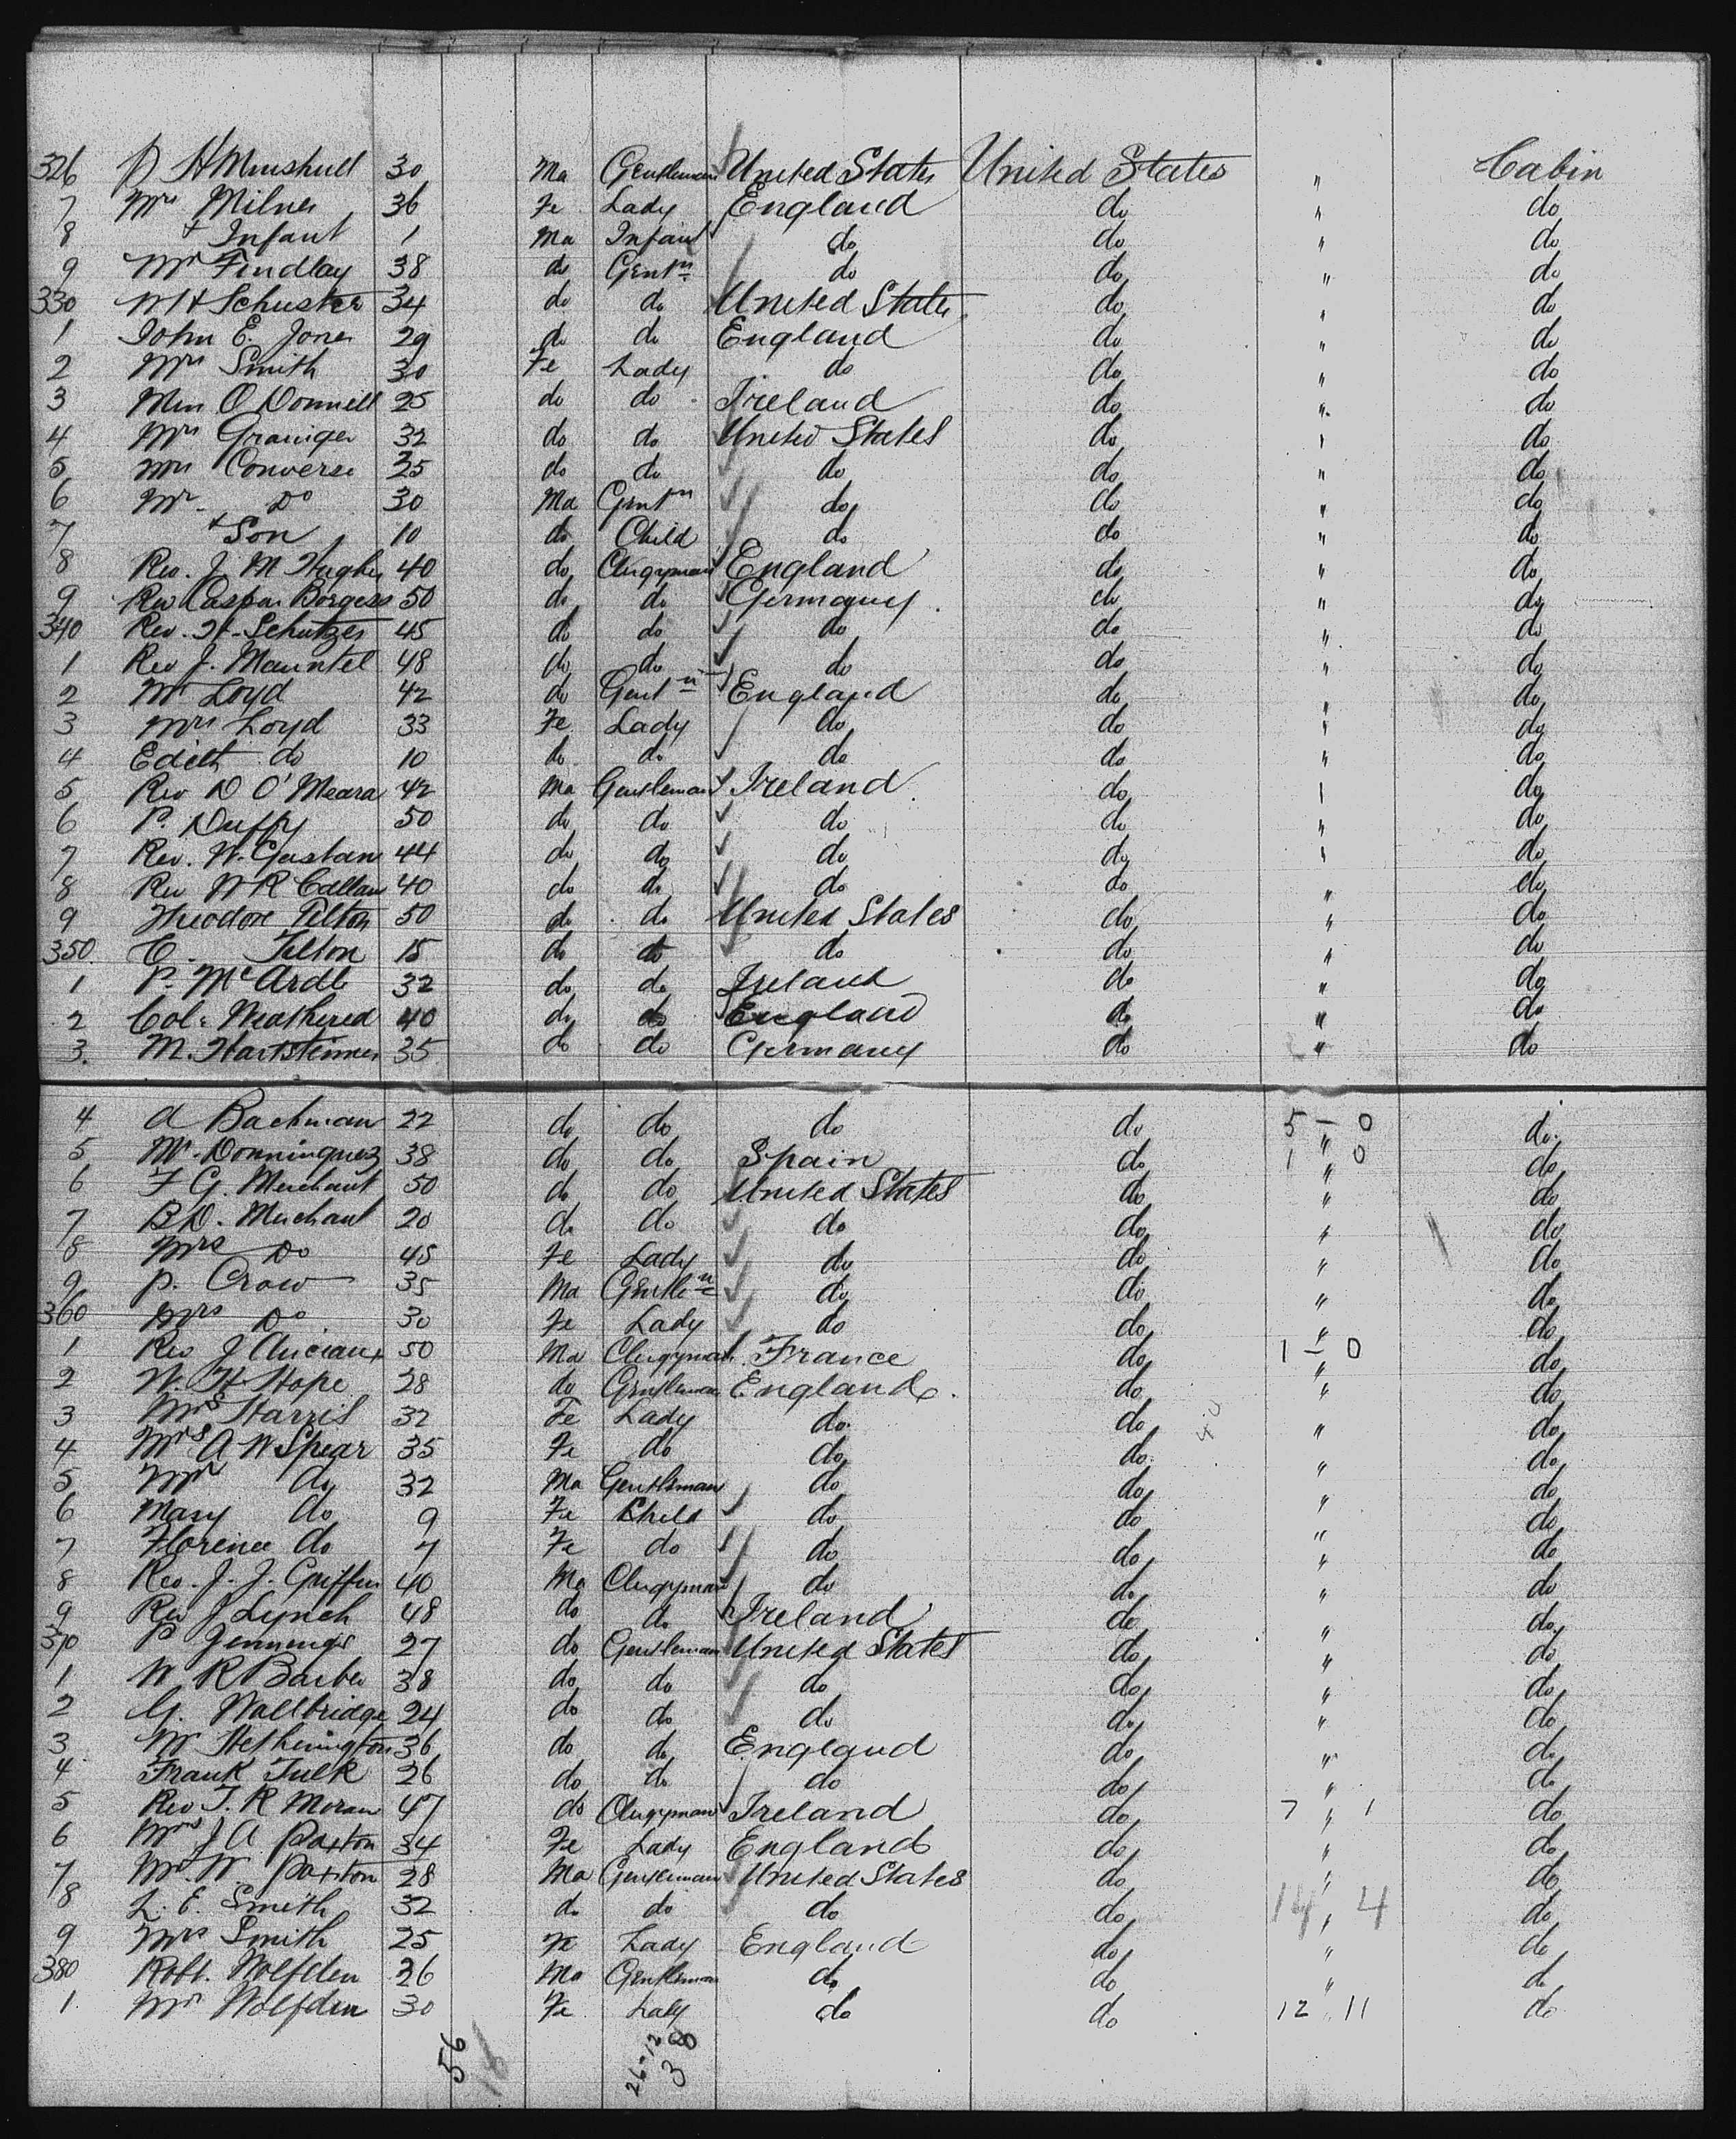 326 D H Minshull 30 Ma Gentleman United States United States " Cabin
7 Mrs Milner 36 Fe Lady England do " do
8 + Infant 1 Ma Infant do do " do
9 Mr Findlay 38 do Gentn do do " do
330 W H Schuster 34 do do United States do " do
1 John E. Jones 29 do do England do " do
2 Mrs Smith 30 Fe Lady do do " do
3 Miss O Donnell 25 do do Ireland do " do
4 Mrs Grainger 32 do do United States do " do
5 Mrs Converse 25 do do do do " do
6 Mr Do 30 Ma Gentn do do " do
7 + Son 10 do Child do do " do
8 Rev. J. M Hughes 40 do Clergyman England do " do
9 Rev Caspar Borgess 50 do do Germany do " do
340 Rev. H. Schutzes 45 do do do do " do
1 Rev J. Mauntel 48 do do do do " do
2 Mr Loyd 42 do Gentn England do " do
3 Mrs Loyd 33 Fe Lady do do " do
4 Edith do 10 do do do do " do
5 Rev D O'Meara 42 Ma Gentleman Ireland do " do
6 P. Duffy 50 do do do do " do
7 Rev. W. Gastan 44 do do do do " do
8 Rev W R Callan 40 do do do do " do
9 Theodore Tilton 50 do do United States do " do
350 C. Tilton 15 do do do do " do
1 P. McArdle 32 do do Ireland do " do
2 Col. Weathered 40 do do England do " do
3. M. Hartstennes 35 do do Germany do " do
4 A Bachman 22 do do do do 5 - 0 " do
5 Mr. Donninguez 38 do do Spain do 1 " 0 do
6 F G. Merchant 50 do do United States do " do
7 B D. Merchant 20 do do do do " do
8 Mrs Do 45 Fe Lady do do " do
9 P. Crow 35 Ma Gentlen do do " do
360 Mrs Do 30 Fe Lady do do " do
1 Rev J Anciaux 50 Ma Clergyman France do 1 - 0 " do
2 W. H Hope 28 do Gentleman England do " do
3 Mrs Harris 32 Fe Lady do do " do
4 Mrs A W Spear 35 Fe do do do " do
5 Mr do 32 Ma Gentleman do do " do
6 Mary do 9 Fe Child do do " do
7 Florence do 7 Fe do do do " do
8 Rev. J. J. Griffin 40 Ma Clergyman do do " do
9 Rev J Lynch 48 do do Ireland do " do
370 P Jennings 27 do Gentleman United States do " do
1 W R Barber 38 do do do do " do
2 G. Wallbridge 24 do do do do " do
3 W Hetherington 36 do do England do " do
4 Frank Tulk 26 do do do do " do
5 Rev T. R Moran 47 do Clergyman Ireland do 7 " 1 do
6 Mrs J A Paxton 34 Fe Lady England do " do
7 Mr. W. Paxton 28 Ma Gentleman United States do " do
8 L. E. Smith 32 do do do do 14 " 4 do
9 Mrs Smith 25 Fe Lady England do " do
380 Robt. Wolfden 26 Ma Gentleman do do " do
1 Mrs Wolfden 30 Fe Lady do do 12 " 11 do
56
18
26-12
38